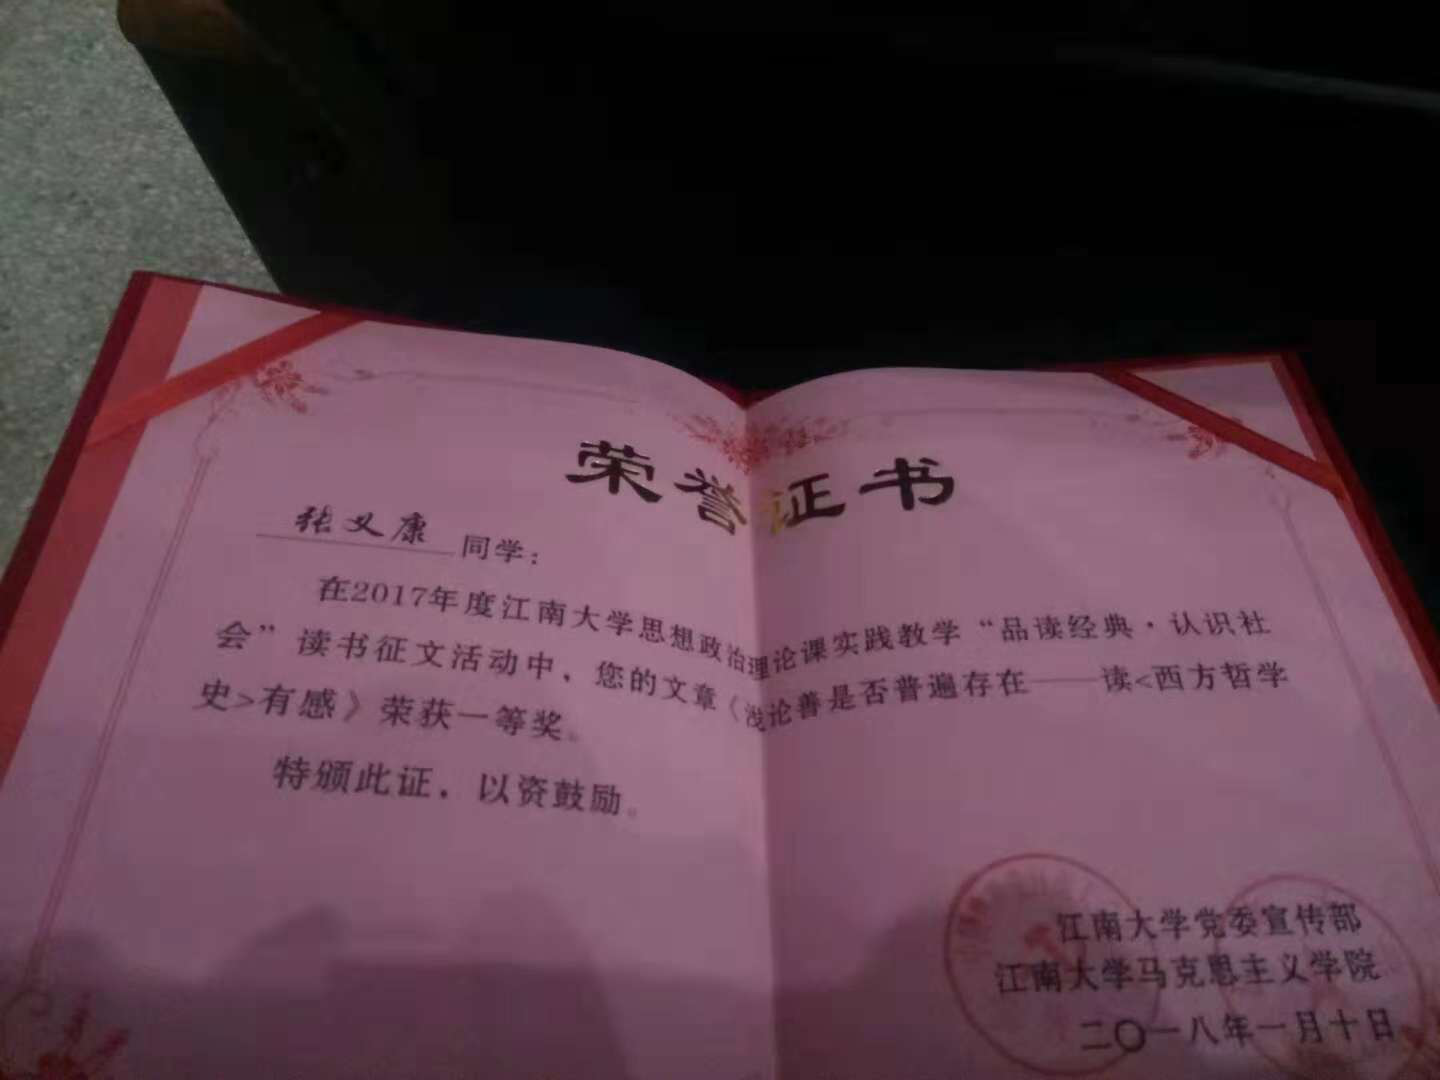 荣誉证书
张义康 同学：
在2017年度江南大学思想政治理论课实践教学“品读经典·认识社
会”读书征文活动中，您的文章《浅论善是否普遍存在——读<西方哲学
史>有感》荣获一等奖。
特颁此证，以资鼓励。
江南大学党委宣传部
江南大学马克思主义学院
二〇一八年一月十日